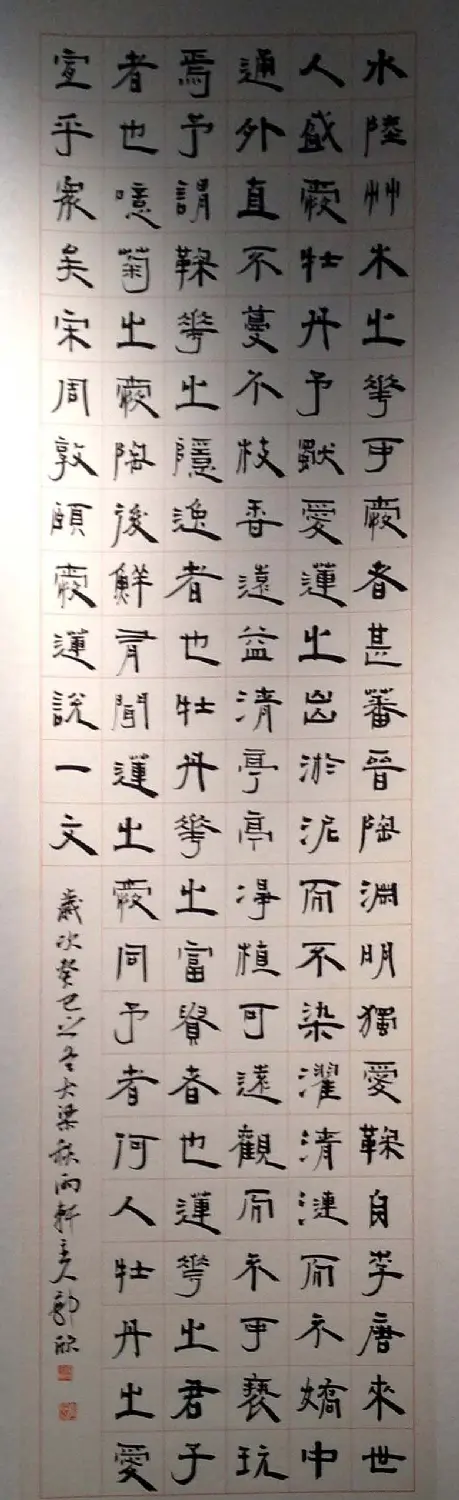 水陸艸木之華可愛者甚蕃晉陶淵明獨愛鞠自李唐來世
人盛愛牡丹予獨愛蓮之出淤泥而不染濯清漣而不嬌中
通外直不蔓不枝香遠益清亭亭淨植可遠觀而不可褻玩
焉予謂鞠華之隱逸者也牡丹華之富貴者也蓮華之君子
者也噫菊之愛陶後鮮有聞蓮之愛同予者何人牡丹之愛
宜乎衆矣宋周敦頤愛蓮說一文
歲次癸巳之冬大梁秋雨軒主人郭